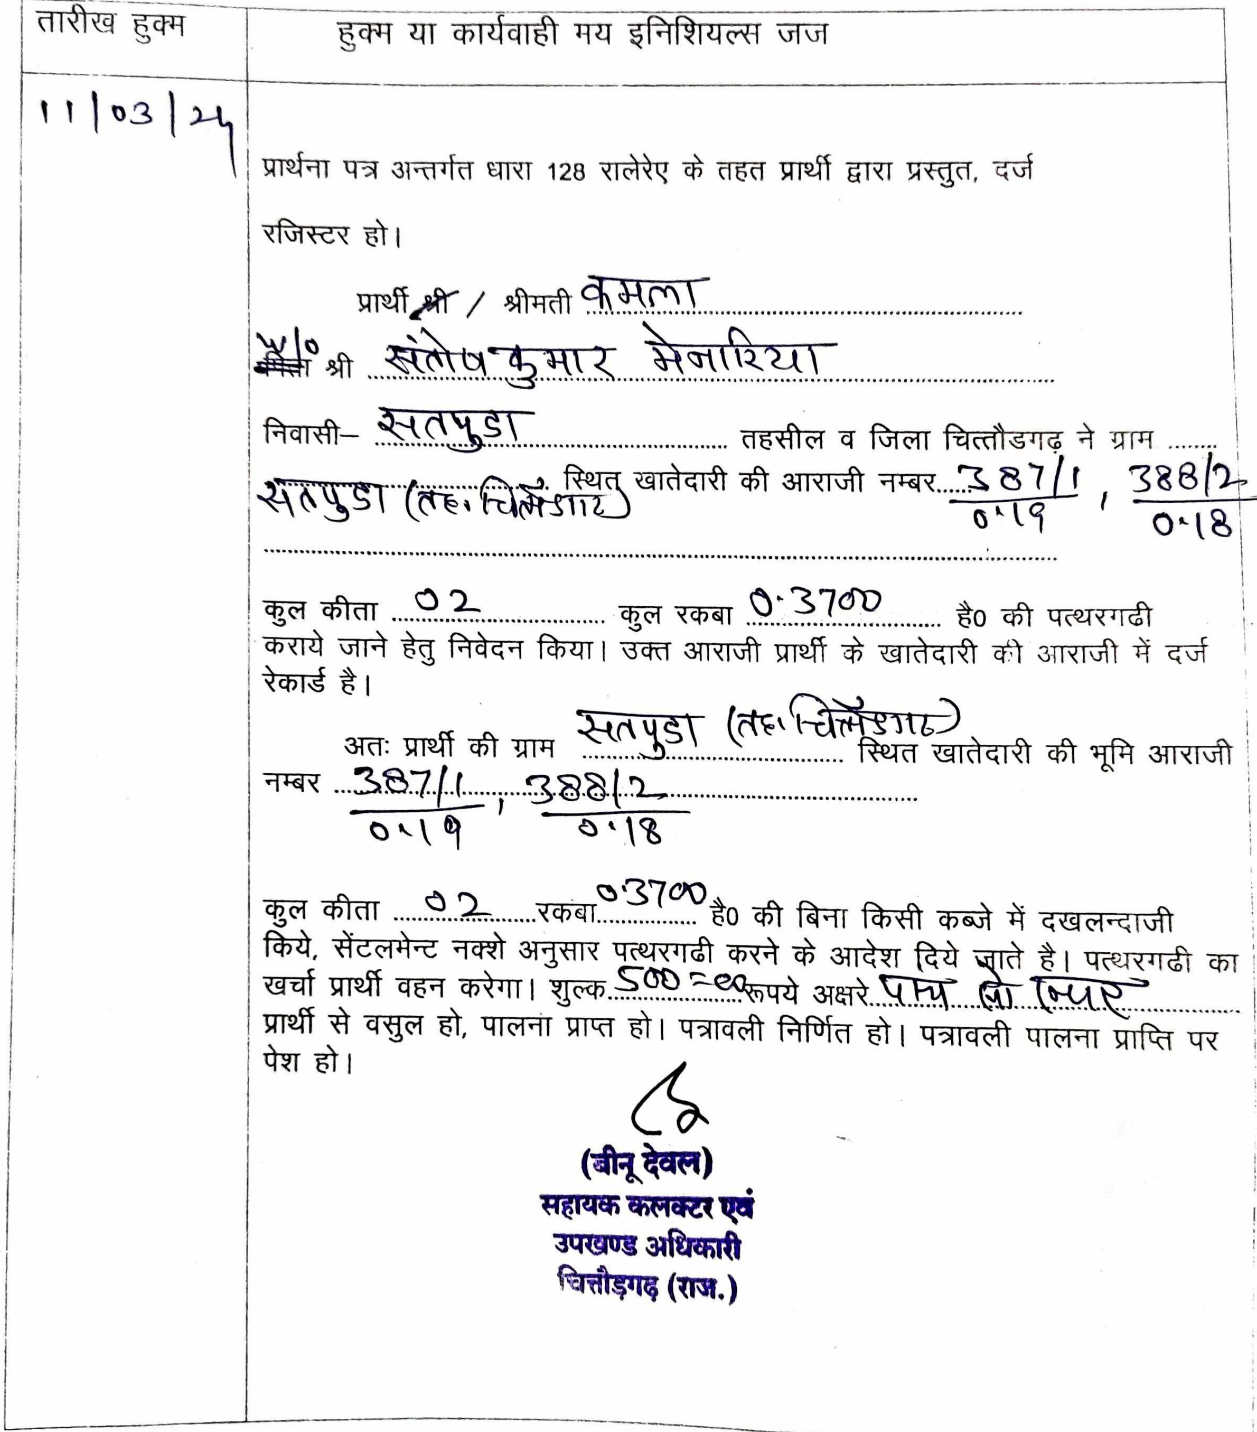 तारीख हुक्म
हुक्म या कार्यवाही मय इनिशियल्स जज
11/03/24
प्रार्थना पत्र अन्तर्गत धारा 128 रालेरेए के तहत प्रार्थी द्वारा प्रस्तुत, दर्ज
रजिस्टर हो।
प्रार्थी श्री / श्रीमती कमला
W/o श्री संतोष कुमार मेनारिया
निवासी– सतपुडा तहसील व जिला चित्तौडगढ़ ने ग्राम ........
सतपुडा (तह. चित्तौडगढ) स्थित खातेदारी की आराजी नम्बर 387/1 , 388/2
0.19 0.18
कुल कीता 02 कुल रकबा 0.3700 है0 की पत्थरगढी
कराये जाने हेतु निवेदन किया। उक्त आराजी प्रार्थी के खातेदारी की आराजी में दर्ज
रेकार्ड है।
अतः प्रार्थी की ग्राम सतपुडा (तह. चित्तौडगढ) स्थित खातेदारी की भूमि आराजी
नम्बर 387/1 , 388/2
0.19 0.18
कुल कीता 02 रकबा 0.3700 है0 की बिना किसी कब्जे में दखलन्दाजी
किये, सेंटलमेन्ट नक्शे अनुसार पत्थरगढी करने के आदेश दिये जाते है। पत्थरगढी का
खर्चा प्रार्थी वहन करेगा। शुल्क 500=00 रूपये अक्षरे पाच सो
प्रार्थी से वसुल हो, पालना प्राप्त हो। पत्रावली निर्णित हो। पत्रावली पालना प्राप्ति पर
पेश हो।
(बीनू देवल)
सहायक कलक्टर एवं
उपखण्ड अधिकारी
चित्तौड़गढ़ (राज.)